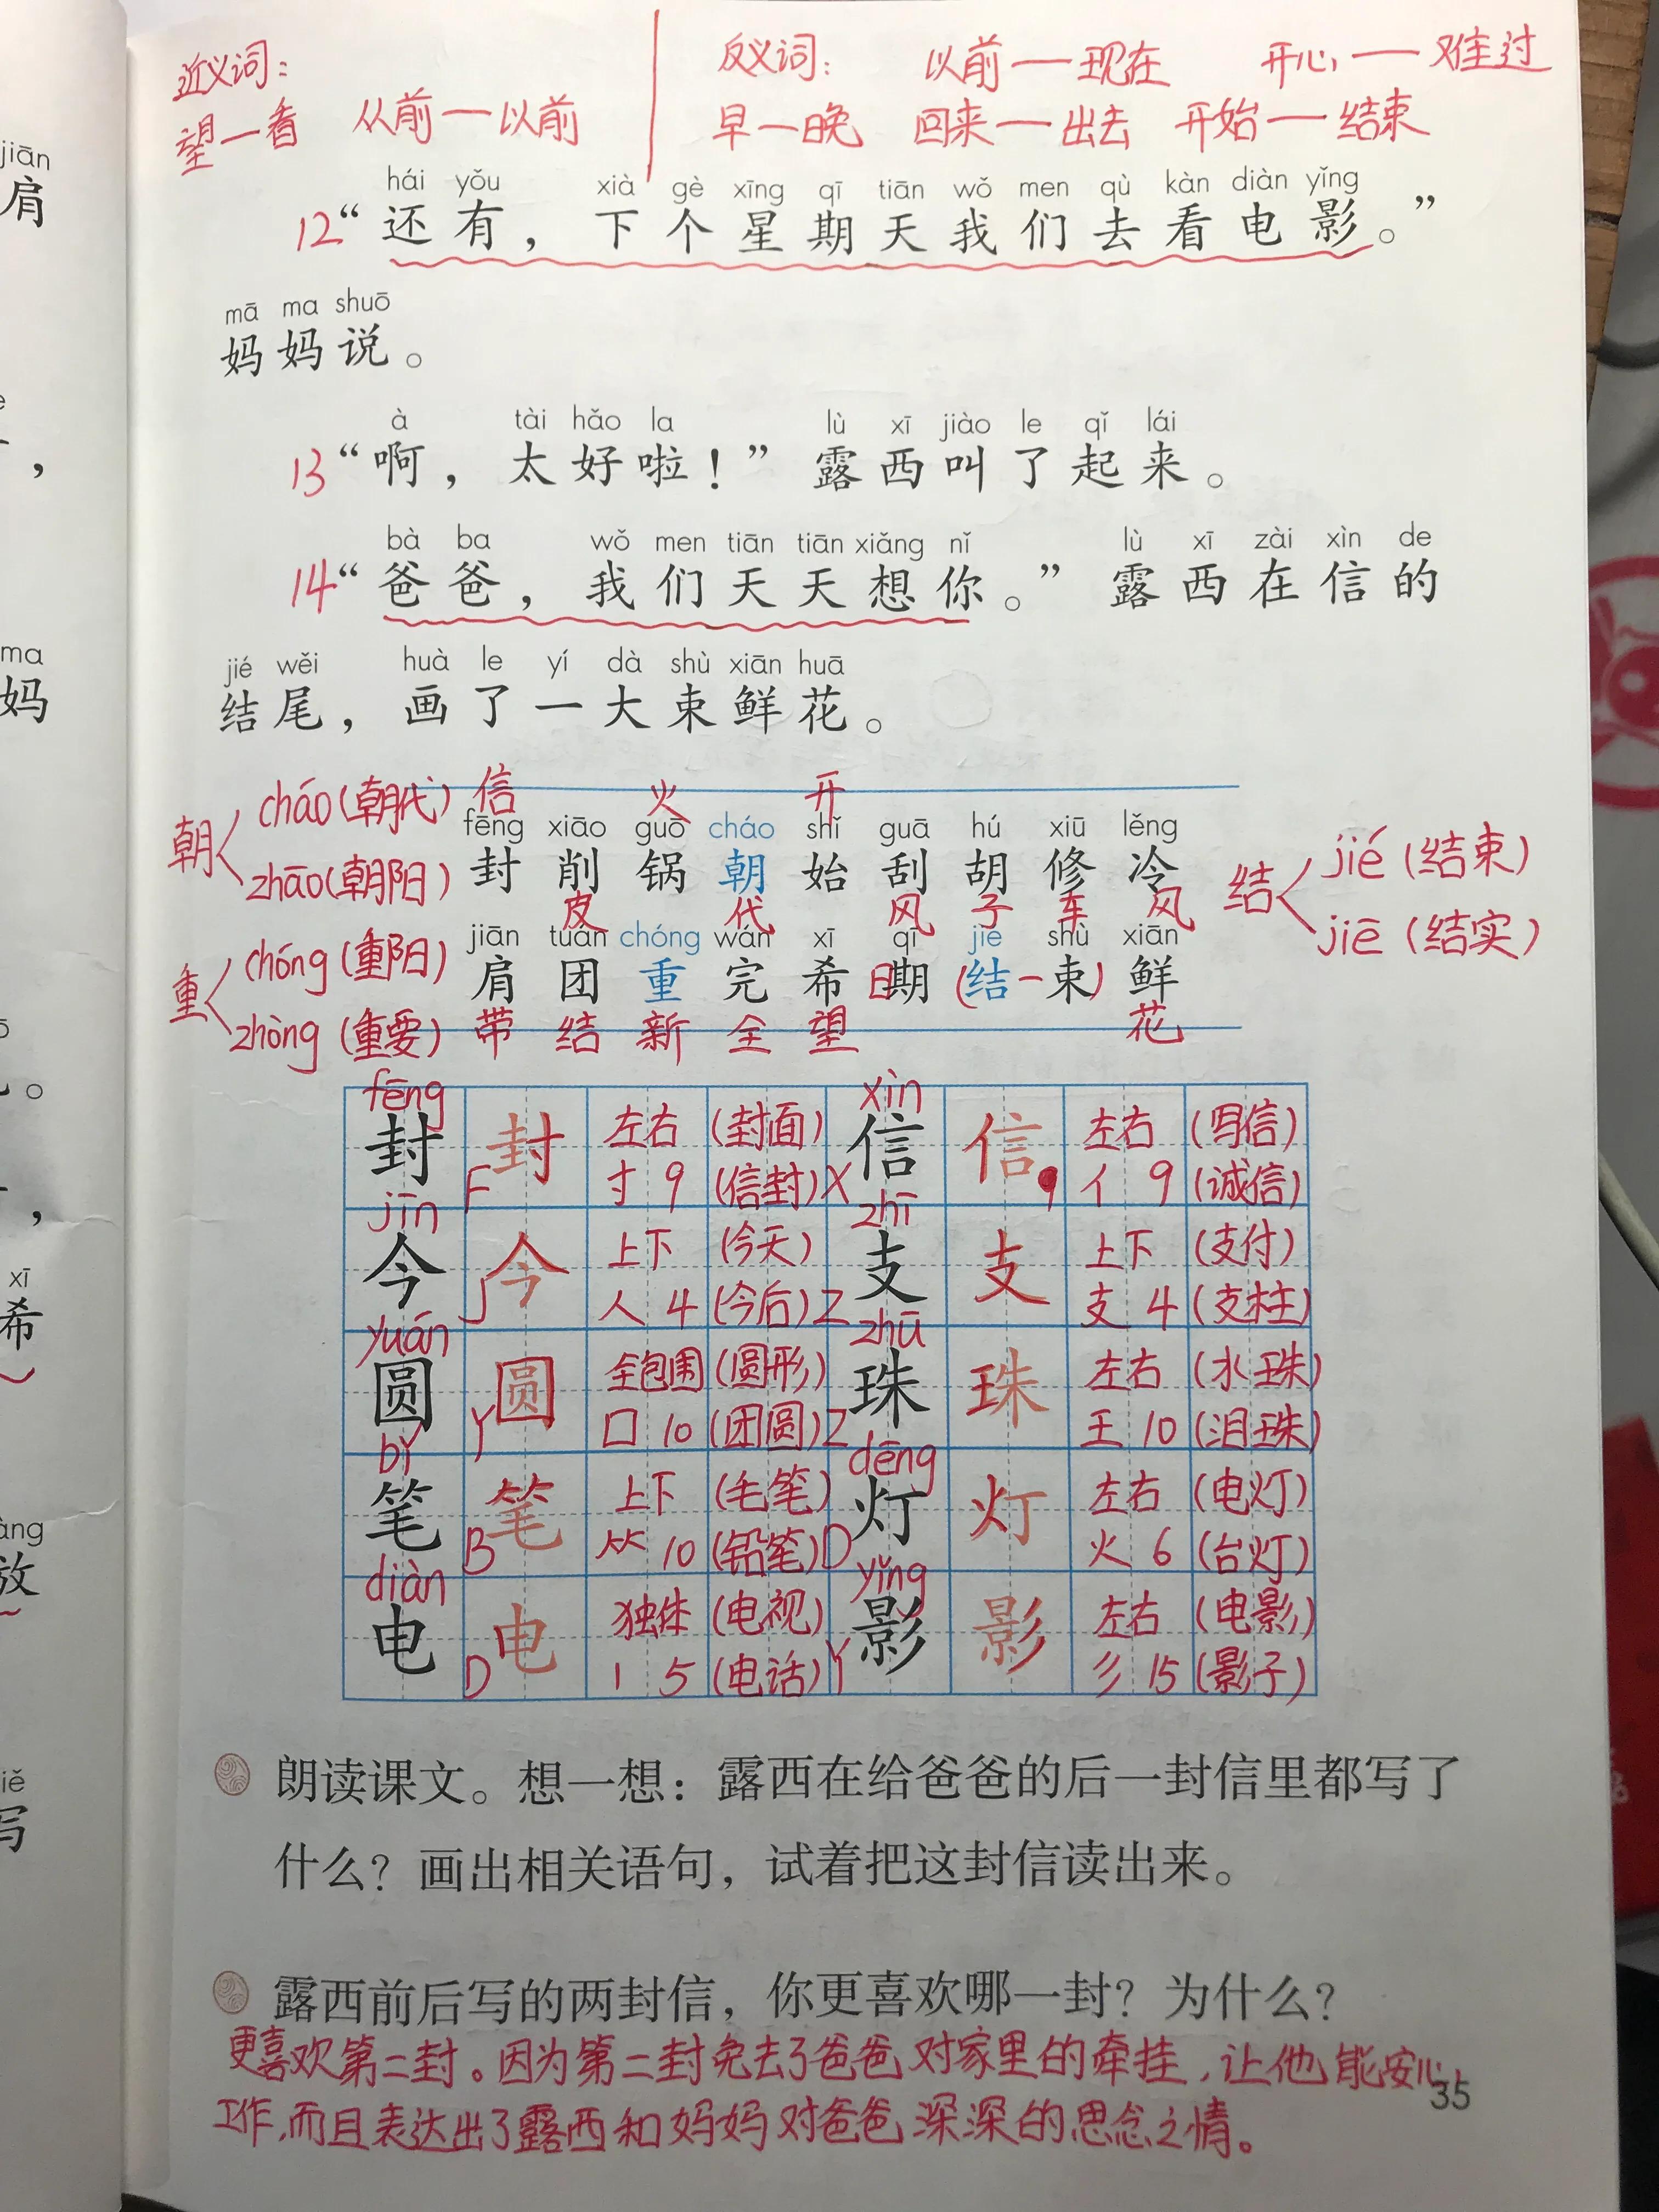 近义词：
望—看 从前—以前
反义词： 以前—现在 开心—难过
早—晚 回来—出去 开始—结束
hái yǒu xià gè xīng qī tiān wǒ men qù kàn diàn yǐng
12“还有，下个星期天我们去看电影。”
mā ma shuō
妈妈说。
à tài hǎo la lù xī jiào le qǐ lái
13“啊，太好啦！”露西叫了起来。
bà ba wǒ men tiān tiān xiǎng nǐ lù xī zài xìn de
14“爸爸，我们天天想你。”露西在信的
jié wěi huà le yí dà shù xiān huā
结尾，画了一大束鲜花。
朝 cháo（朝代）
zhāo（朝阳）
重 chóng（重阳）
zhòng（重要）
信 火 开
fēng xiāo guō cháo shǐ guā hú xiū lěng
封 削 锅 朝 始 刮 胡 修 冷
皮 代 风 子 车 风
jiān tuán chóng wán xī qī jié shù xiān
肩 团 重 完 希 日期 （结—束） 鲜
带 结 新 全 望 花
结 jié（结束）
jiē（结实）
fēng xìn
封 封 左右 （封面） 信 信 左右 （写信）
F 寸 9 （信封） X 9 亻 9 （诚信）
jīn zhī
今 今 上下 （今天） 支 支 上下 （支付）
J 人 4 （今后） Z 支 4 （支柱）
yuán zhū
圆 圆 全包围 （圆形） 珠 珠 左右 （水珠）
Y 口 10 （团圆） Z 王 10 （泪珠）
bǐ dēng
笔 笔 上下 （毛笔） 灯 灯 左右 （电灯）
B ⺮ 10 （铅笔） D 火 6 （台灯）
diàn yǐng
电 电 独体 （电视） 影 影 左右 （电影）
D 丨 5 （电话） Y 彡 15 （影子）
朗读课文。想一想：露西在给爸爸的后一封信里都写了
什么？画出相关语句，试着把这封信读出来。
露西前后写的两封信，你更喜欢哪一封？为什么？
更喜欢第二封。因为第二封免去了爸爸对家里的牵挂，让他能安心
工作，而且表达出了露西和妈妈对爸爸深深的思念之情。
35
jiān
肩
，
ma
妈
。
，
xī
希
放
写